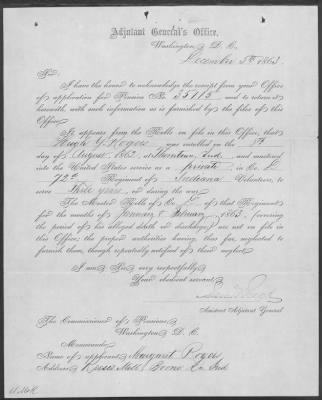 Adjutant General's Office,
Washington, D. C.
December 5th 1863
Sir:
I have the honor to acknowledge the receipt from your Office
of application for Pension No. 35713 and to return it
herewith, with such information as is furnished by the files of this
Office.
It appears from the Rolls on file in this Office, that
Hugh Y. Rogers was enrolled on the 8th
day of August, 1862, at Thorntown Ind. and mustered
into the United States service as a Private in Co. D
72d Regiment of Indiana Volunteers, to
serve Three years, or during the war.
The Muster Rolls of Co. of that Regiment
for the months of January & February, 1863, (covering
the period of his alleged death or discharge,) are not on file in
this Office; the proper authorities having, thus far, neglected to
furnish them, though repeatedly notified of their neglect.
I am Sir, very respectfully,
Your obedient servant,
Assistant Adjutant General
The Commissioner of Pensions,
Washington, D. C.
Memoranda.
Name of applicant Margaret Rogers
Address Mill, Boone Co. Ind